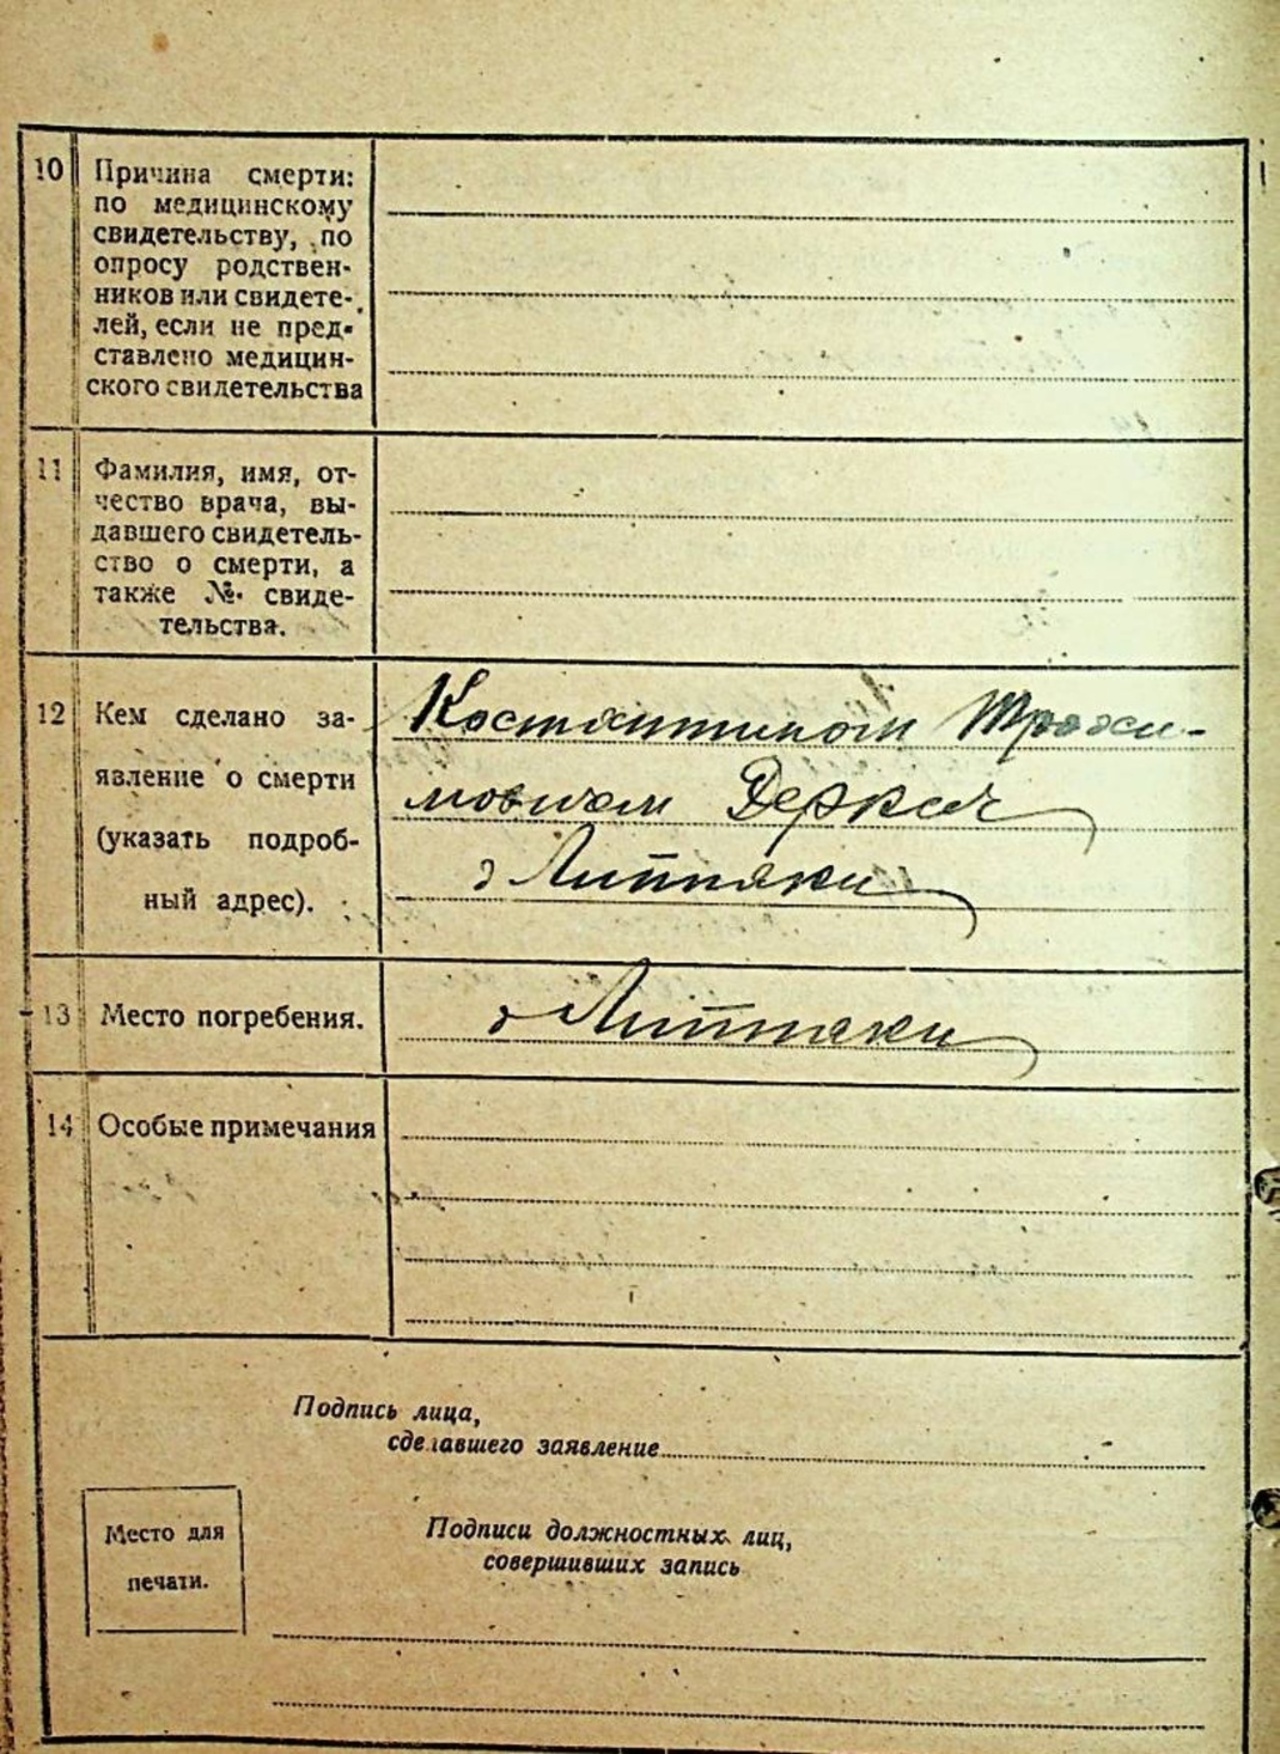 10 Причина смерти:
по медицинскому
свидетельству, по
опросу родствен-
ников или свидете-
лей, если не пред-
ставлено медицин-
ского свидетельства
11 Фамилия, имя, от-
чество врача, вы-
давшего свидетель-
ство о смерти, а
также №. свиде-
тельства.
12 Кем сделано за-
явление о смерти
(указать подроб-
ный адрес).
Костантином Трохи-
мовичом Деркач
з Липняки
13 Место погребения.
з Липняки
14 Особые примечания
Подпись лица,
сделавшего заявление
Место для
печати.
Подписи должностных лиц,
совершивших запись